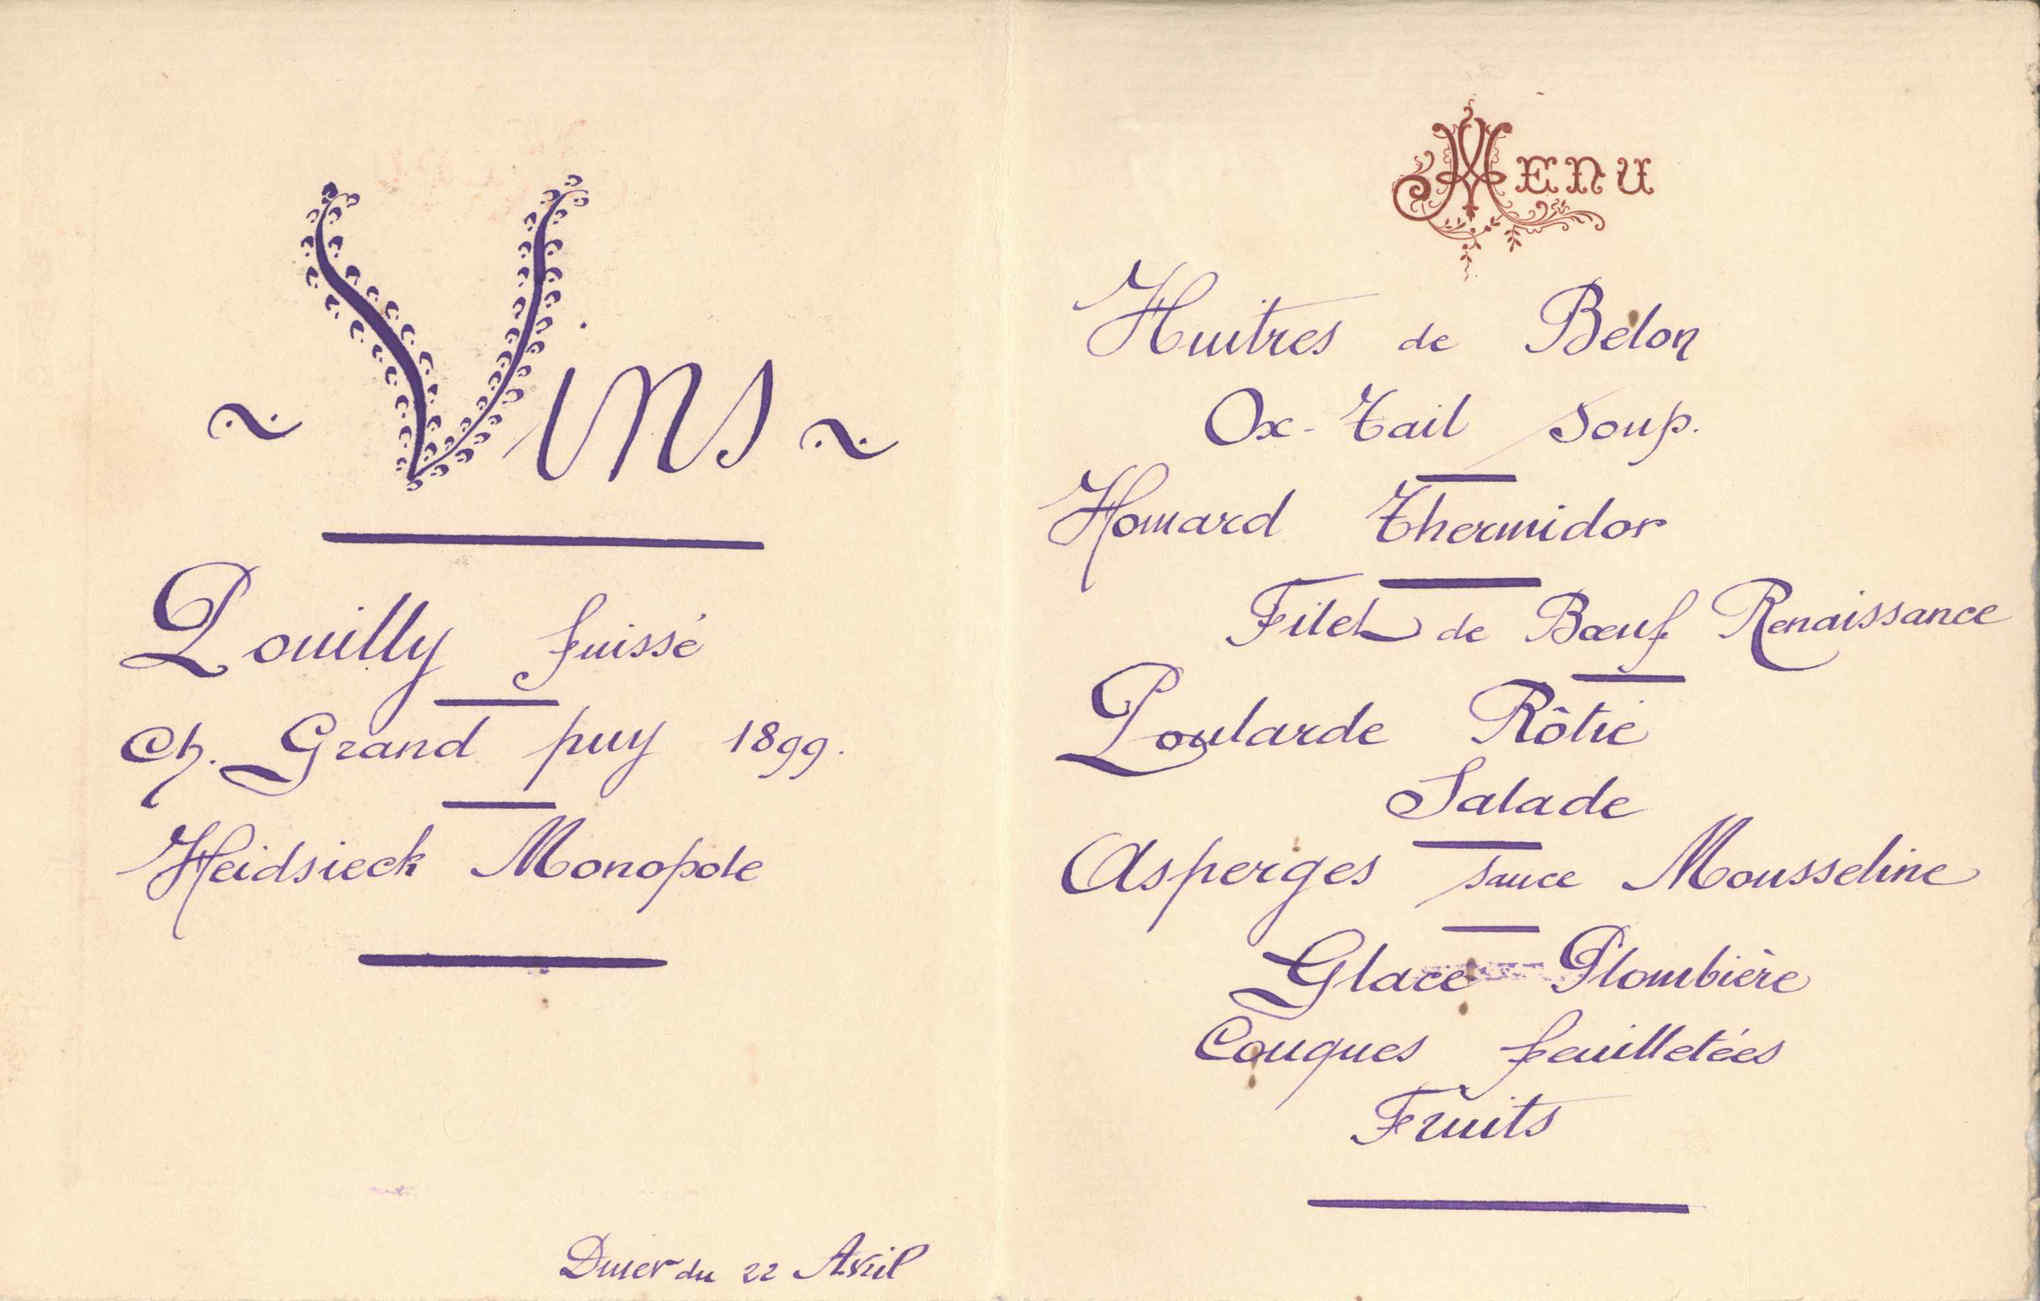 ~ Vins ~
Pouilly fuissé
Ch. Grand puy 1899.
Heidsieck Monopole
Diner du 22 Avril
Menu
Huitres de Belon
Ox-Tail Soup.
Homard Thermidor
Filet de Bœuf Renaissance
Poularde Rôtie
Salade
Asperges sauce Mousseline
Glace Plombière
Couques feuilletées
Fruits